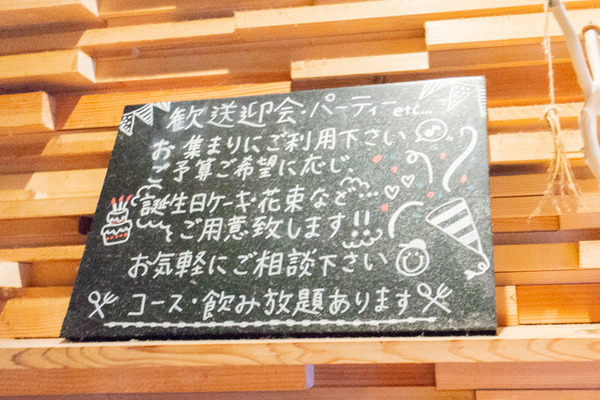 歓送迎会・パーティーetc...
お集まりにご利用下さい
ご予算ご希望に応じ、
誕生日ケーキ・花束など…
ご用意致します!!
お気軽にご相談下さい
コース・飲み放題あります